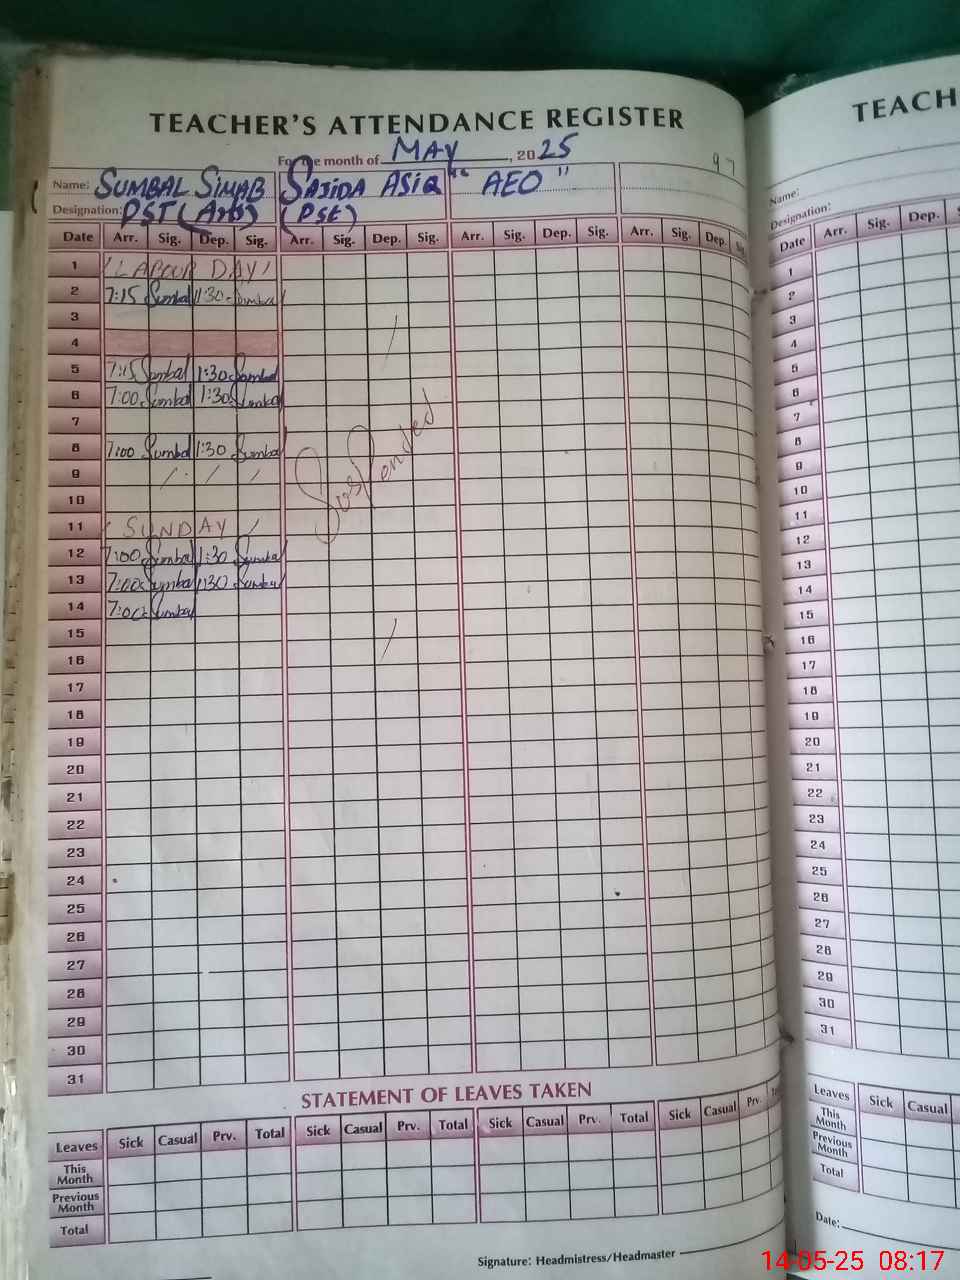 TEACHER'S ATTENDANCE REGISTER
For the month of MAY, 2025
97
Name: SUMBAL SIMAB SAJIDA ASIQ "AEO"
Designation: PST (Arts) (PST)
Date Arr. Sig. Dep. Sig. Arr. Sig. Dep. Sig. Arr. Sig. Dep. Sig. Arr. Sig. Dep. Sig.
1 LABOUR DAY
2 7:15 Sumbal 1:30 Sumbal
3
4
5 7:15 Sumbal 1:30 Sumbal
6 7:00 Sumbal 1:30 Sumbal
7
8 7:00 Sumbal 1:30 Sumbal
9
10
11 SUNDAY
12 7:00 Sumbal 1:30 Sumbal
13 7:00 Sumbal 1:30 Sumbal
14 7:00 Sumbal
15
16
17
18
19
20
21
22
23
24
25
26
27
28
29
30
31
Suspended
STATEMENT OF LEAVES TAKEN
Leaves Sick Casual Prv. Total Sick Casual Prv. Total Sick Casual Prv. Total Sick Casual Prv.
This Month
Previous Month
Total
Signature: Headmistress/Headmaster
TEACH
Name:
Designation:
Date Arr. Sig. Dep.
1
2
3
4
5
6
7
8
9
10
11
12
13
14
15
16
17
18
19
20
21
22
23
24
25
26
27
28
29
30
31
Leaves Sick Casual
This Month
Previous Month
Total
Date:
14-05-25 08:17